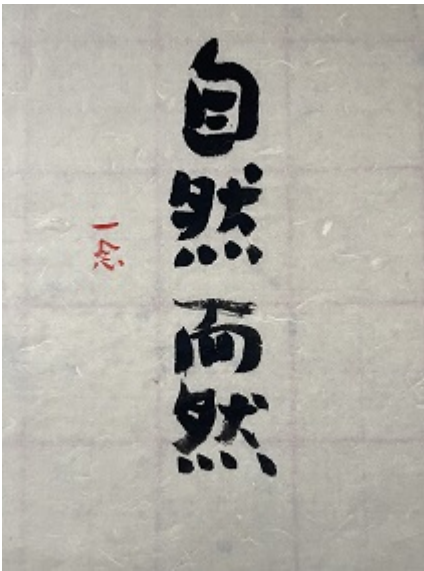 自然而然
一念